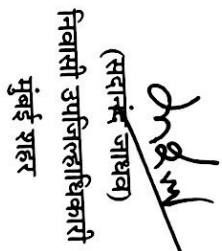 (सदानंद जाधव)
निवासी उपजिल्हाधिकारी
मुंबई शहर